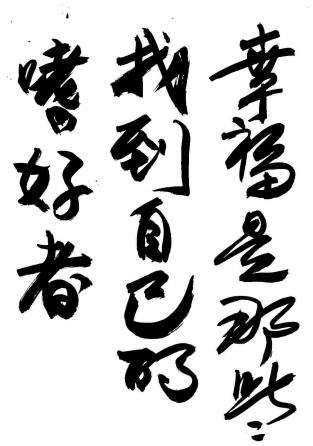 幸福是那些
找到自己的
嗜好者